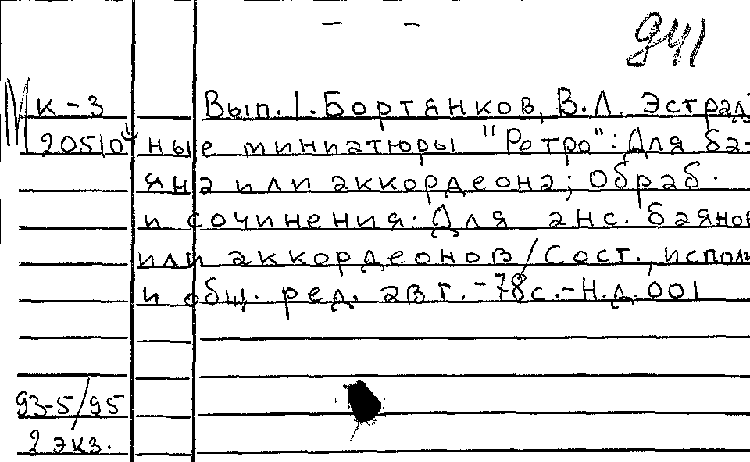 941
К-3 Вып. 1. Бортянков, В.Л. Эстрад
20510 ные миниатюры "Ретро": Для ба-
яна или аккордеона; Обраб.
и сочинения. Для анс. баянов
или аккордеонов/Сост., исполн
и общ. ред. авт. -78с.-Н.д. 001
93-5/95
2 экз.